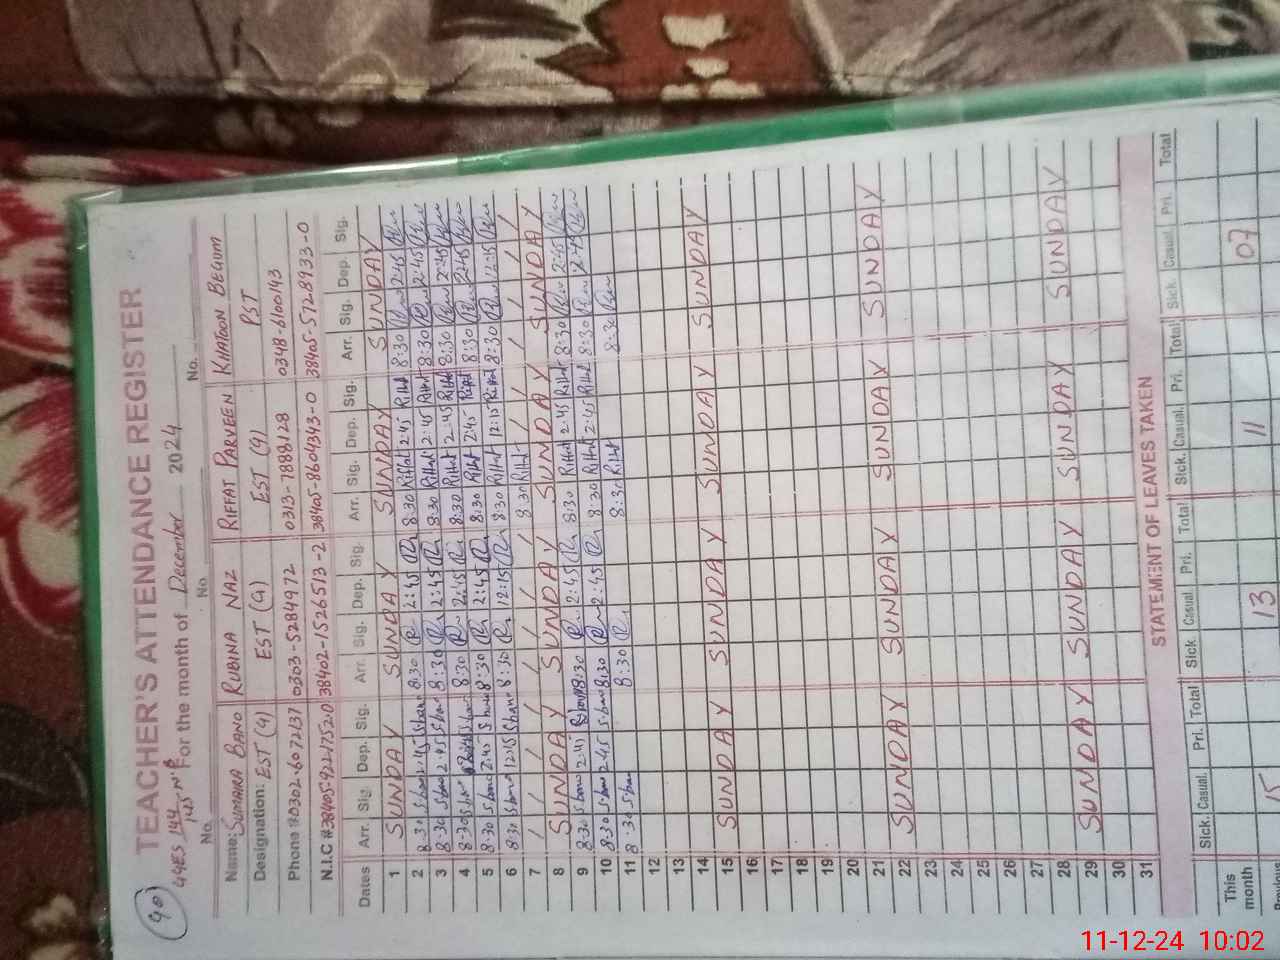 90
TEACHER'S ATTENDANCE REGISTER
For the month of December 2024
No. No. No. No.
Name: SUMAIRA BANO RUBINA NAZ RIFFAT PARVEEN KHATOON BEGUM
Designation: EST (9) EST (9) EST (9) PST
Phone # 0302-6072137 0303-5284972 0313-7888128 0348-6100143
N.I.C # 38405-9221752-0 38402-1526513-2 38405-8601343-0 38405-5728933-0
Dates Arr. Sig. Dep. Sig. Arr. Sig. Dep. Sig. Arr. Sig. Dep. Sig. Arr. Sig. Dep. Sig.
1 SUNDAY SUNDAY SUNDAY SUNDAY
2 8:30 2:45 8:30 2:45 8:30 Riffat 2:45 Riffat 8:30 2:45
3 8:30 2:45 8:30 2:45 8:30 Riffat 2:45 Riffat 8:30 2:45
4 8:30 8:30 2:45 8:30 Riffat 2:45 Riffat 8:30 2:45
5 8:30 2:45 8:30 2:45 8:30 Riffat 2:45 Riffat 8:30 2:45
6 8:30 12:15 8:30 12:15 8:30 Riffat 12:15 Riffat 8:30 12:15
7 / / / / / / / / 8:30 Riffat / / / / / /
8 SUNDAY SUNDAY SUNDAY SUNDAY
9 8:30 2:45 8:30 2:45 8:30 Riffat 2:45 Riffat 8:30 2:45
10 8:30 2:45 8:30 2:45 8:30 Riffat 2:45 Riffat 8:30 2:45
11 8:30 8:30 8:30 Riffat 8:30
12
13
14
15 SUNDAY SUNDAY SUNDAY SUNDAY
16
17
18
19
20
21
22 SUNDAY SUNDAY SUNDAY SUNDAY
23
24
25
26
27
28
29 SUNDAY SUNDAY SUNDAY SUNDAY
30
31
STATEMENT OF LEAVES TAKEN
Sick. Casual. Pri. Total Sick. Casual. Pri. Total Sick. Casual. Pri. Total Sick. Casual Pri. Total
This month 13 11 07
Previous 15
11-12-24 10:02